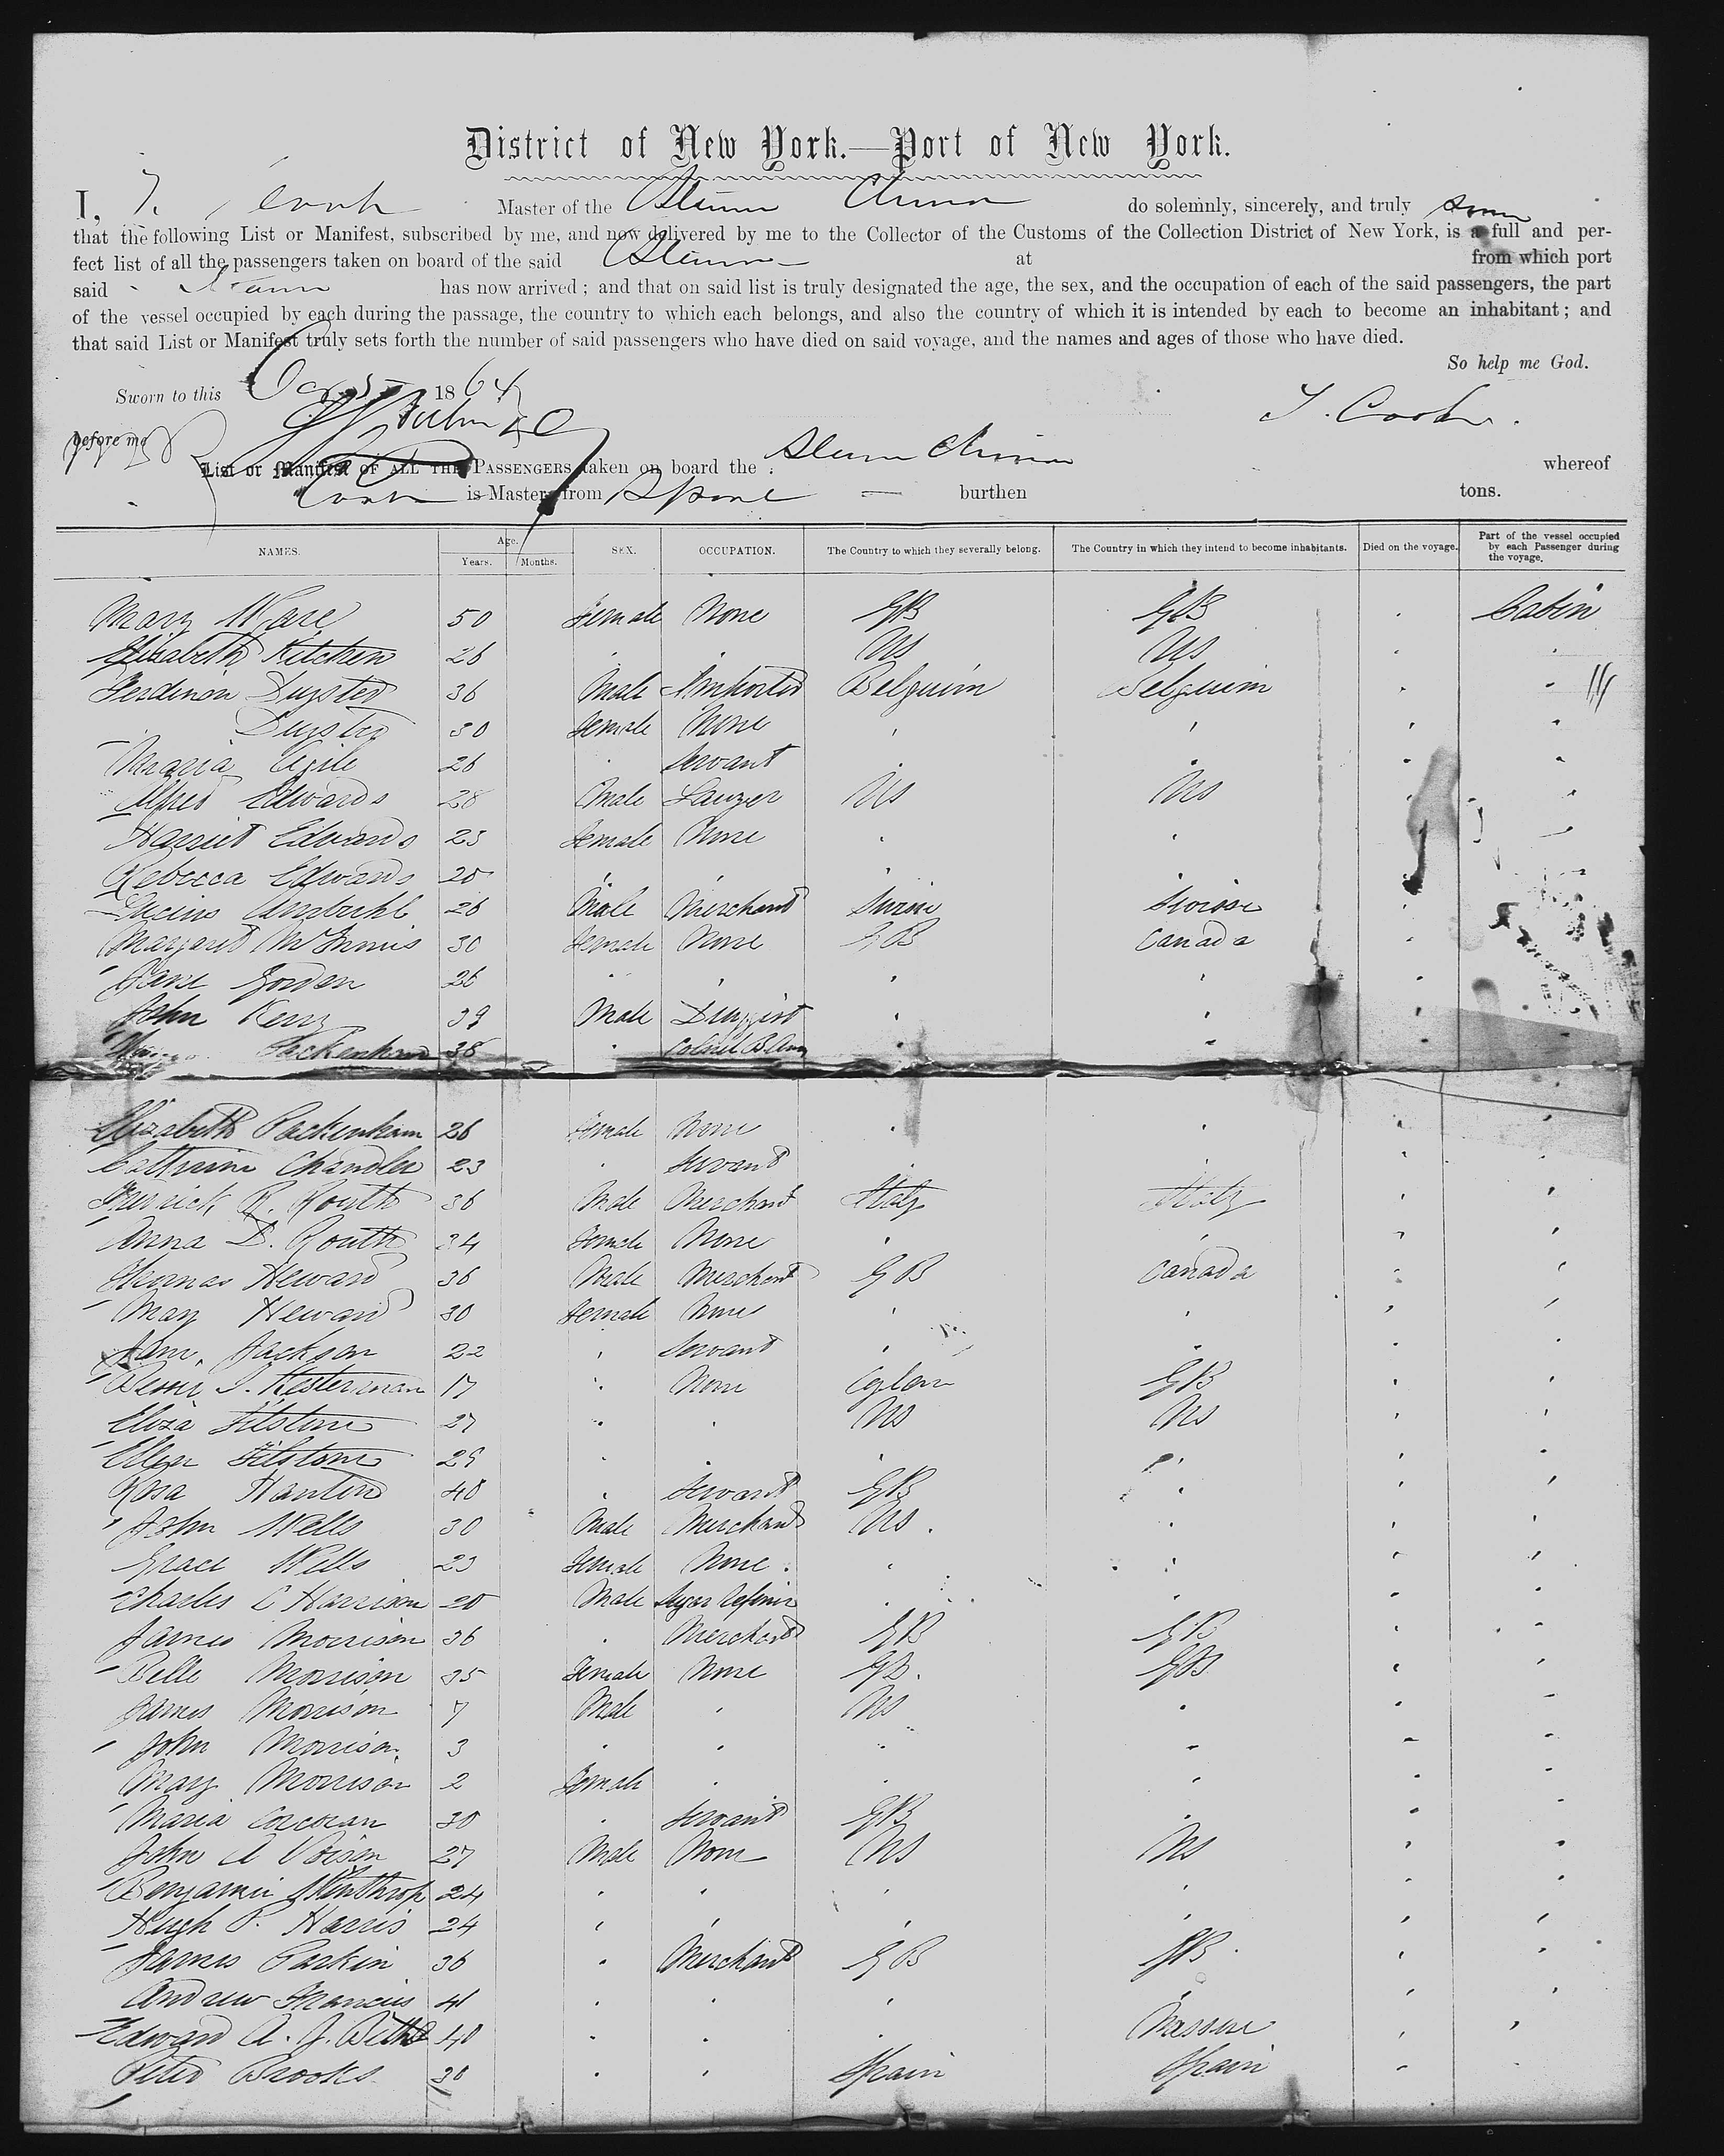 District of New York.—Port of New York.
I, T. Cook Master of the Steamer China do solemnly, sincerely, and truly swear
that the following List or Manifest, subscribed by me, and now delivered by me to the Collector of the Customs of the Collection District of New York, is a full and per-
fect list of all the passengers taken on board of the said Steamer at from which port
said Steamer has now arrived; and that on said list is truly designated the age, the sex, and the occupation of each of the said passengers, the part
of the vessel occupied by each during the passage, the country to which each belongs, and also the country of which it is intended by each to become an inhabitant; and
that said List or Manifest truly sets forth the number of said passengers who have died on said voyage, and the names and ages of those who have died.
So help me God.
Sworn to this 1864
T. Cook.
before me
List or Manifest OF ALL THE PASSENGERS taken on board the Steam China whereof
Cook is Master, from burthen tons.
NAMES. Age. Years. Months. SEX. OCCUPATION. The Country to which they severally belong. The Country in which they intend to become inhabitants. Died on the voyage. Part of the vessel occupied by each Passenger during the voyage.
Mary Ware 50 Female None GB GB Cabin
Elizabeth Kitchen 26 " " US US
Ferdinon Duyster 36 Male Belguim Belguim
Duyster 30 Female None
Maria 26 Servant
Alfred Edwards 28 Male Lawyer US US
Harriet Edwards 23 Female None
Rebecca Edwards 20
Lucius Umbuhl 26 Male Merchant Swisse Swisse
Margaret McInnis 30 Female None GB Canada
Jane Gordon 26
John Kerry 39 Male Druggist
Packenham 38 Colonel B Army
Elizabeth Packenham 26 Female None
Cathrine Chandler 23 Servant
R. Routh 36 Male Merchant Italy Italy
Anna D. Routh 34 Female None
Thomas Heward 36 Male Merchant GB Canada
Mary Heward 30 Female None
Jane Jackson 22 Servant
J. Kesterman 17 None Ceylon GB
Eliza Tilstone 27 US US
Ellen Tilstone 29
Rosa 40 Servant GB
John Wells 30 Male Merchant US.
Grace Wells 23 Female None.
Charles C Harrison 20 Male Sugar Refiner
James Morrison 36 Merchant GB GB
Belle Morrison 35 Female None GB. GB
James Morrison 7 Male US
John Morrison 3
Mary Morrison 2 Female
Maria Corcoran 30 Servant GB
John A 27 Male None US US
Benjamin Winthrop 24
Hugh P. Harris 24
James Parkin 36 Merchant GB GB
Andrew Francis 41
Edward A. J. 40 Nassau
Peter Brooks 38 Spain Spain